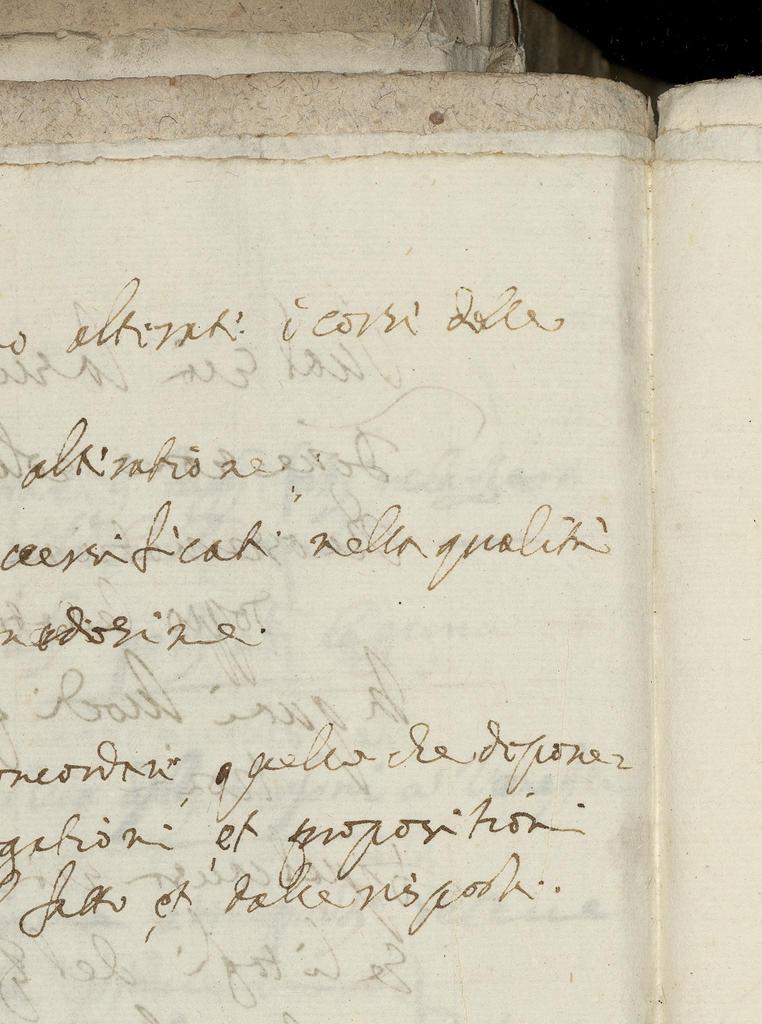 o alterati i corsi delle
alteratione
versificati nella qualità
medesime.
oncordare, quello che depone
gationi et propositioni
fatto et dalle risposte..